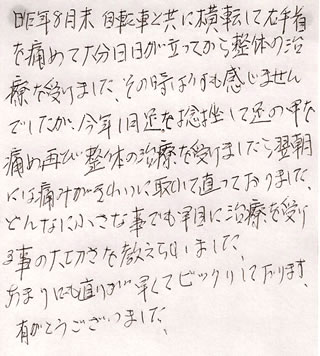 昨年8月末 自転車と共に横転して右手首
を痛めて大分日日が立ってから整体の治
療を受けました。その時は何も感じません
でしたが、今年1月足を捻挫して足の甲を
痛め再び整体の治療を受けましたら翌朝
には痛みがきれいに取れて直っておりました、
どんなに小さな事でも早目に治療を受け
る事の大切さを教えられました、
あまりにも直りが早くてビックリしております、
有がとうございました、